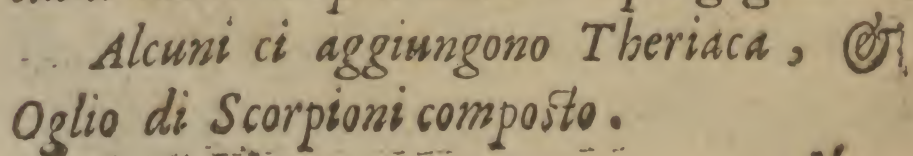 Alcuni ci aggiungono Theriaca, &
Oglio di Scorpioni composto.